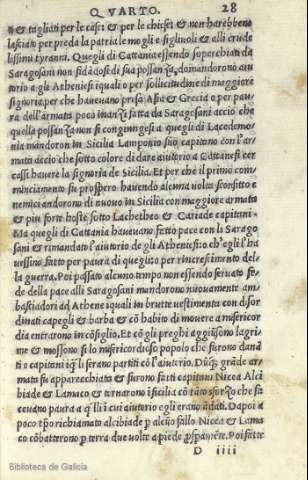 Q VARTO. 28
ne & tagliati per le case & per le chiese & non harebbeno
lasciati per preda la patria le mogli e figliuoli & alli crude
lissimi tyranni. Quegli di Cattania essendo soperchiati da
Saragosani non fidādosi di sua possanza, domandorono aiu
torio a gli Atheniesi i quali per sollicitudine di maggiore
signoria, per che haueuano presa Asia & Grecia o per pau
ra dell'armata poco inanzi fatta da Saragosani acciò che
quella possanza non si congiungesi a quegli di Lacedemo-
nia mandoron in Sicilia Lamponio suo capitano con l'ar
mata acciò che sotto colore di dare aiutorio a Cattanesi cer
cassi hauere la signoria de Sicilia. Et per che il primo com
minciamento fu prospero hauendo alcuna uolta sconfitto e
nemici andorono di nuouo in Sicilia con maggiore armata
& piu forte hoste sotto Lachetheo & Cariade capitani.
Ma quegli di Cattania haueuano fatto pace con li Sarago
sani & rimandato l'aiutorio de gli Atheniesi o ch' egli l'ha
uessino fatto per paura di quegli o per rincrescimento del-
la guerra. Poi passato alcuno tempo non essendo seruato fe-
de della pace alli Saragosani mandorono nuouamente am
basciadori ad Athene i quali in brutte uestimenta con disor
dinati capegli & barba & cō habito di mouere a misericor
dia entrarono in cōsiglio. Et cō gli preghi aggiūsono lagri
me & mossono si lo misericordioso popolo che furono dana
ti e capitani iq̄li serano partiti cō l'aiutorio. Dūq; grāde ar
mata fu apparecchiata & furono fatti capitani Nicea Alci
biade & Lamaco & tornarono ī sicilia cō tāto sforzo che fa
ceuano paura a q̄lli ī cui aiutorio egli erano ādati. Dapoi a
poco tp̄o richiamato alcibiade p alcūo fallo Nicea & Lama
co cōbatterono p terra due uolte a piede p̱spamēte. Poi fatte
D iiii
Biblioteca de Galicia